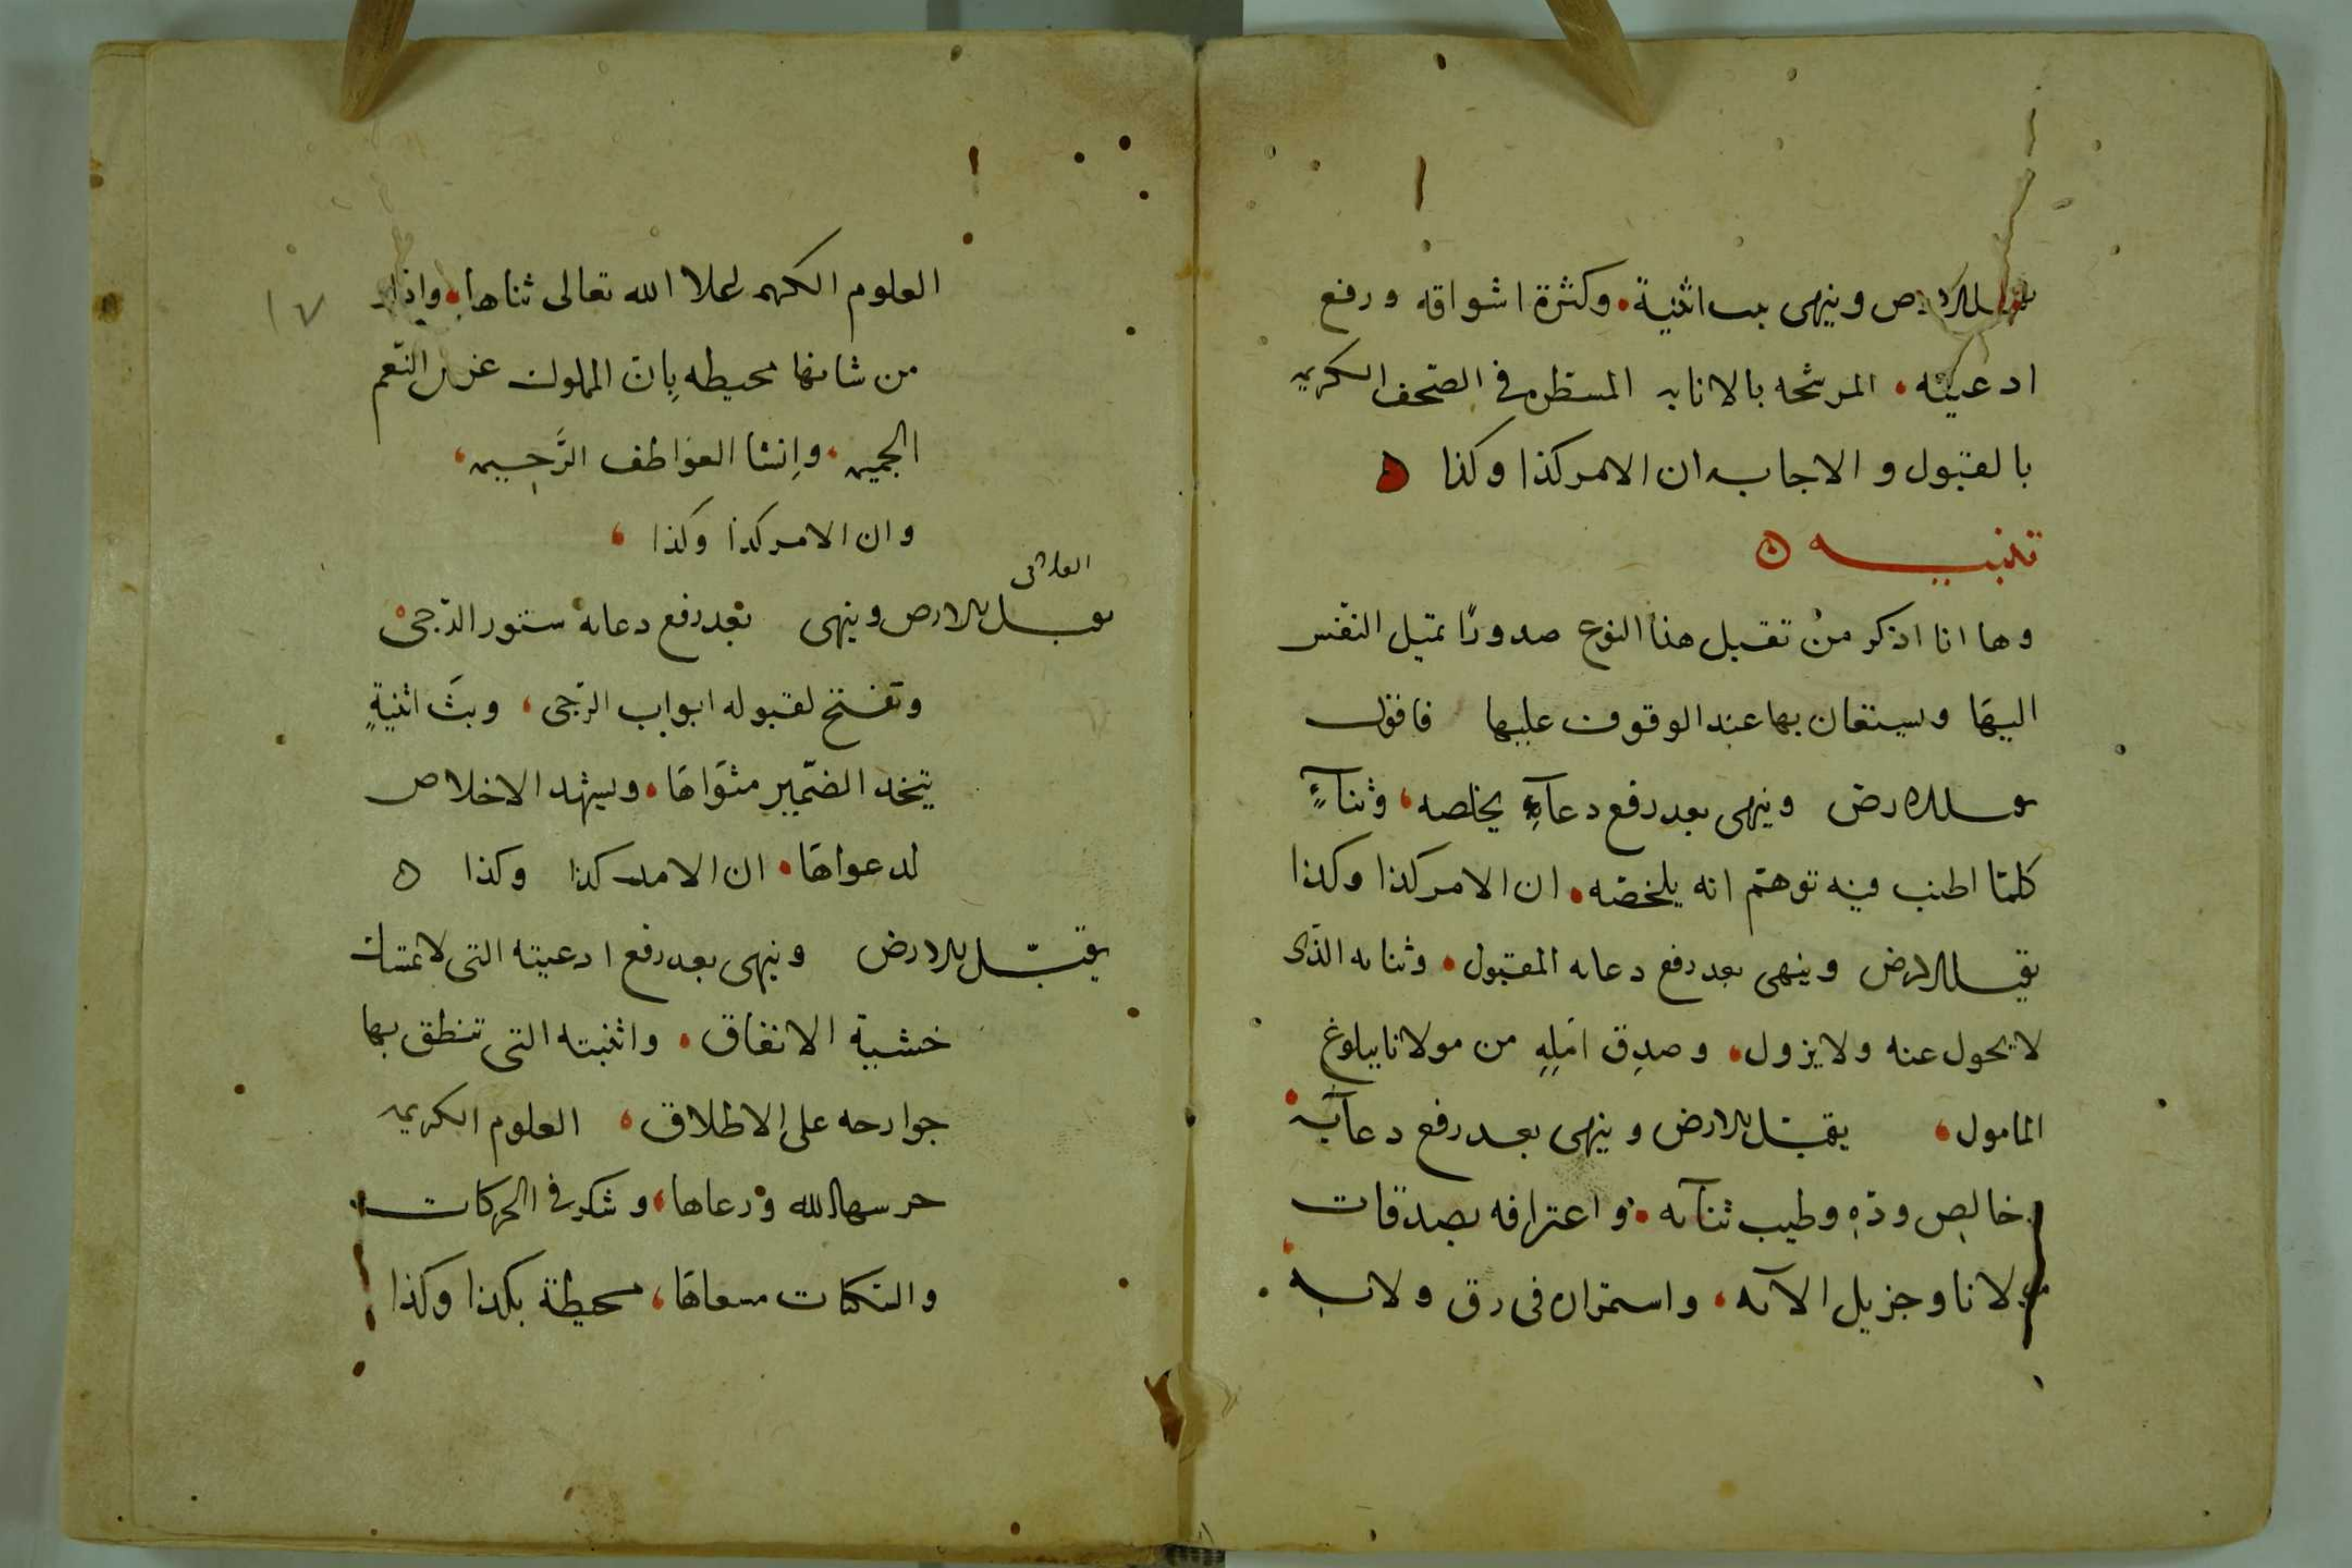 يقبل الارض وينهى بث اثنية وكثرة اشواقه ورفع
ادعيته المرشحه بالانابه المسطره في الصحف الكريمه
بالقبول والاجابه ان الامر كذا وكذا
تنبيه
وها انا اذكر من تقبل هذا النوع صدورًا تميل النفس
اليها ويستعان بها عند الوقوف عليها فاقول
يقبل الارض وينهى بعد رفع دعآءٍ يخلصه وثنآءٍ
كلما اطنب فيه توهم انه يلخصه ان الامر كذا وكذا
يقبل الارض وينهى بعد رفع دعايه المقبول وثنايه الذى
لا يحول عنه ولا يزول وصدق امله من مولانا ببلوغ
المامول يقبل الارض وينهى بعد رفع دعآيه
خالص ودّهِ وطيب ثنآيه واعترافه بصدقات
مولانا وجزيل الآيه واستمراره فى رق ولايه
العلوم الكريمه لا الله تعالى ثناها واذا
من شانها محيطه بان المملوك النّعم
وانشا العواطف الرَّحيمه
وان الامر كذا وكذا
يقبل الارض وينهى بعد رفع دعايه ستور الدّجى
وتفتح لقبوله ابواب الرّجى وبثَ اثنيةٍ
يتخذ الضّمير مثواها ويشهد الاخلاص
لدعواها ان الامر كذا وكذا
يقبّل الارض وينهى بعد رفع ادعيته التى لا تمسك
خشية الانفاق واثنيته التى تنطق بها
جوارحه على الاطلاق العلوم الكريمه
حرسها الله ورعاها وشكر في الحركات
والسكنات مسعاها محيطة بكذا وكذا
١٧